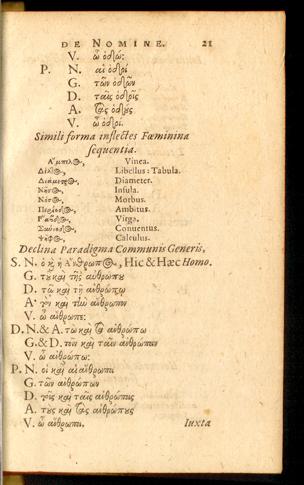 DE NOMINE. 21
V. ὦ ὁδώ:
P. N. αἱ ὁδοί
G. τῶν ὁδῶν
D. ταῖς ὁδοῖς
A. τὰς ὁδούς
V. ὦ ὁδοί.
Simili forma inflectes Fœminina
sequentia.
Ἄμπελος, Vinea.
Δέλτος, Libellus: Tabula.
Διάμετρος, Diameter.
Νῆσος, Insula.
Νόσος, Morbus.
Περίοδος, Ambitus.
Ῥάβδος, Virga.
Σύνοδος, Conuentus.
Ψῆφος, Calculus.
Declina Paradigma Communis Generis,
S. N. ὁ καὶ ἡ ἄνθρωπος, Hic & Hæc Homo.
G. τοῦ καὶ τῆς ἀνθρώπου
D. τῷ καὶ τῇ ἀνθρώπῳ
A. τὸν καὶ τὴν ἄνθρωπον
V. ὦ ἄνθρωπε:
D. N. & A. τὼ καὶ τὰ ἀνθρώπω
G. & D. τοῖν καὶ ταῖν ἀνθρώποιν
V. ὦ ἀνθρώπω:
P. N. οἱ καὶ αἱ ἄνθρωποι
G. τῶν ἀνθρώπων
D. τοῖς καὶ ταῖς ἀνθρώποις
A. τοὺς καὶ τὰς ἀνθρώπους
V. ὦ ἄνθρωποι. Iuxta